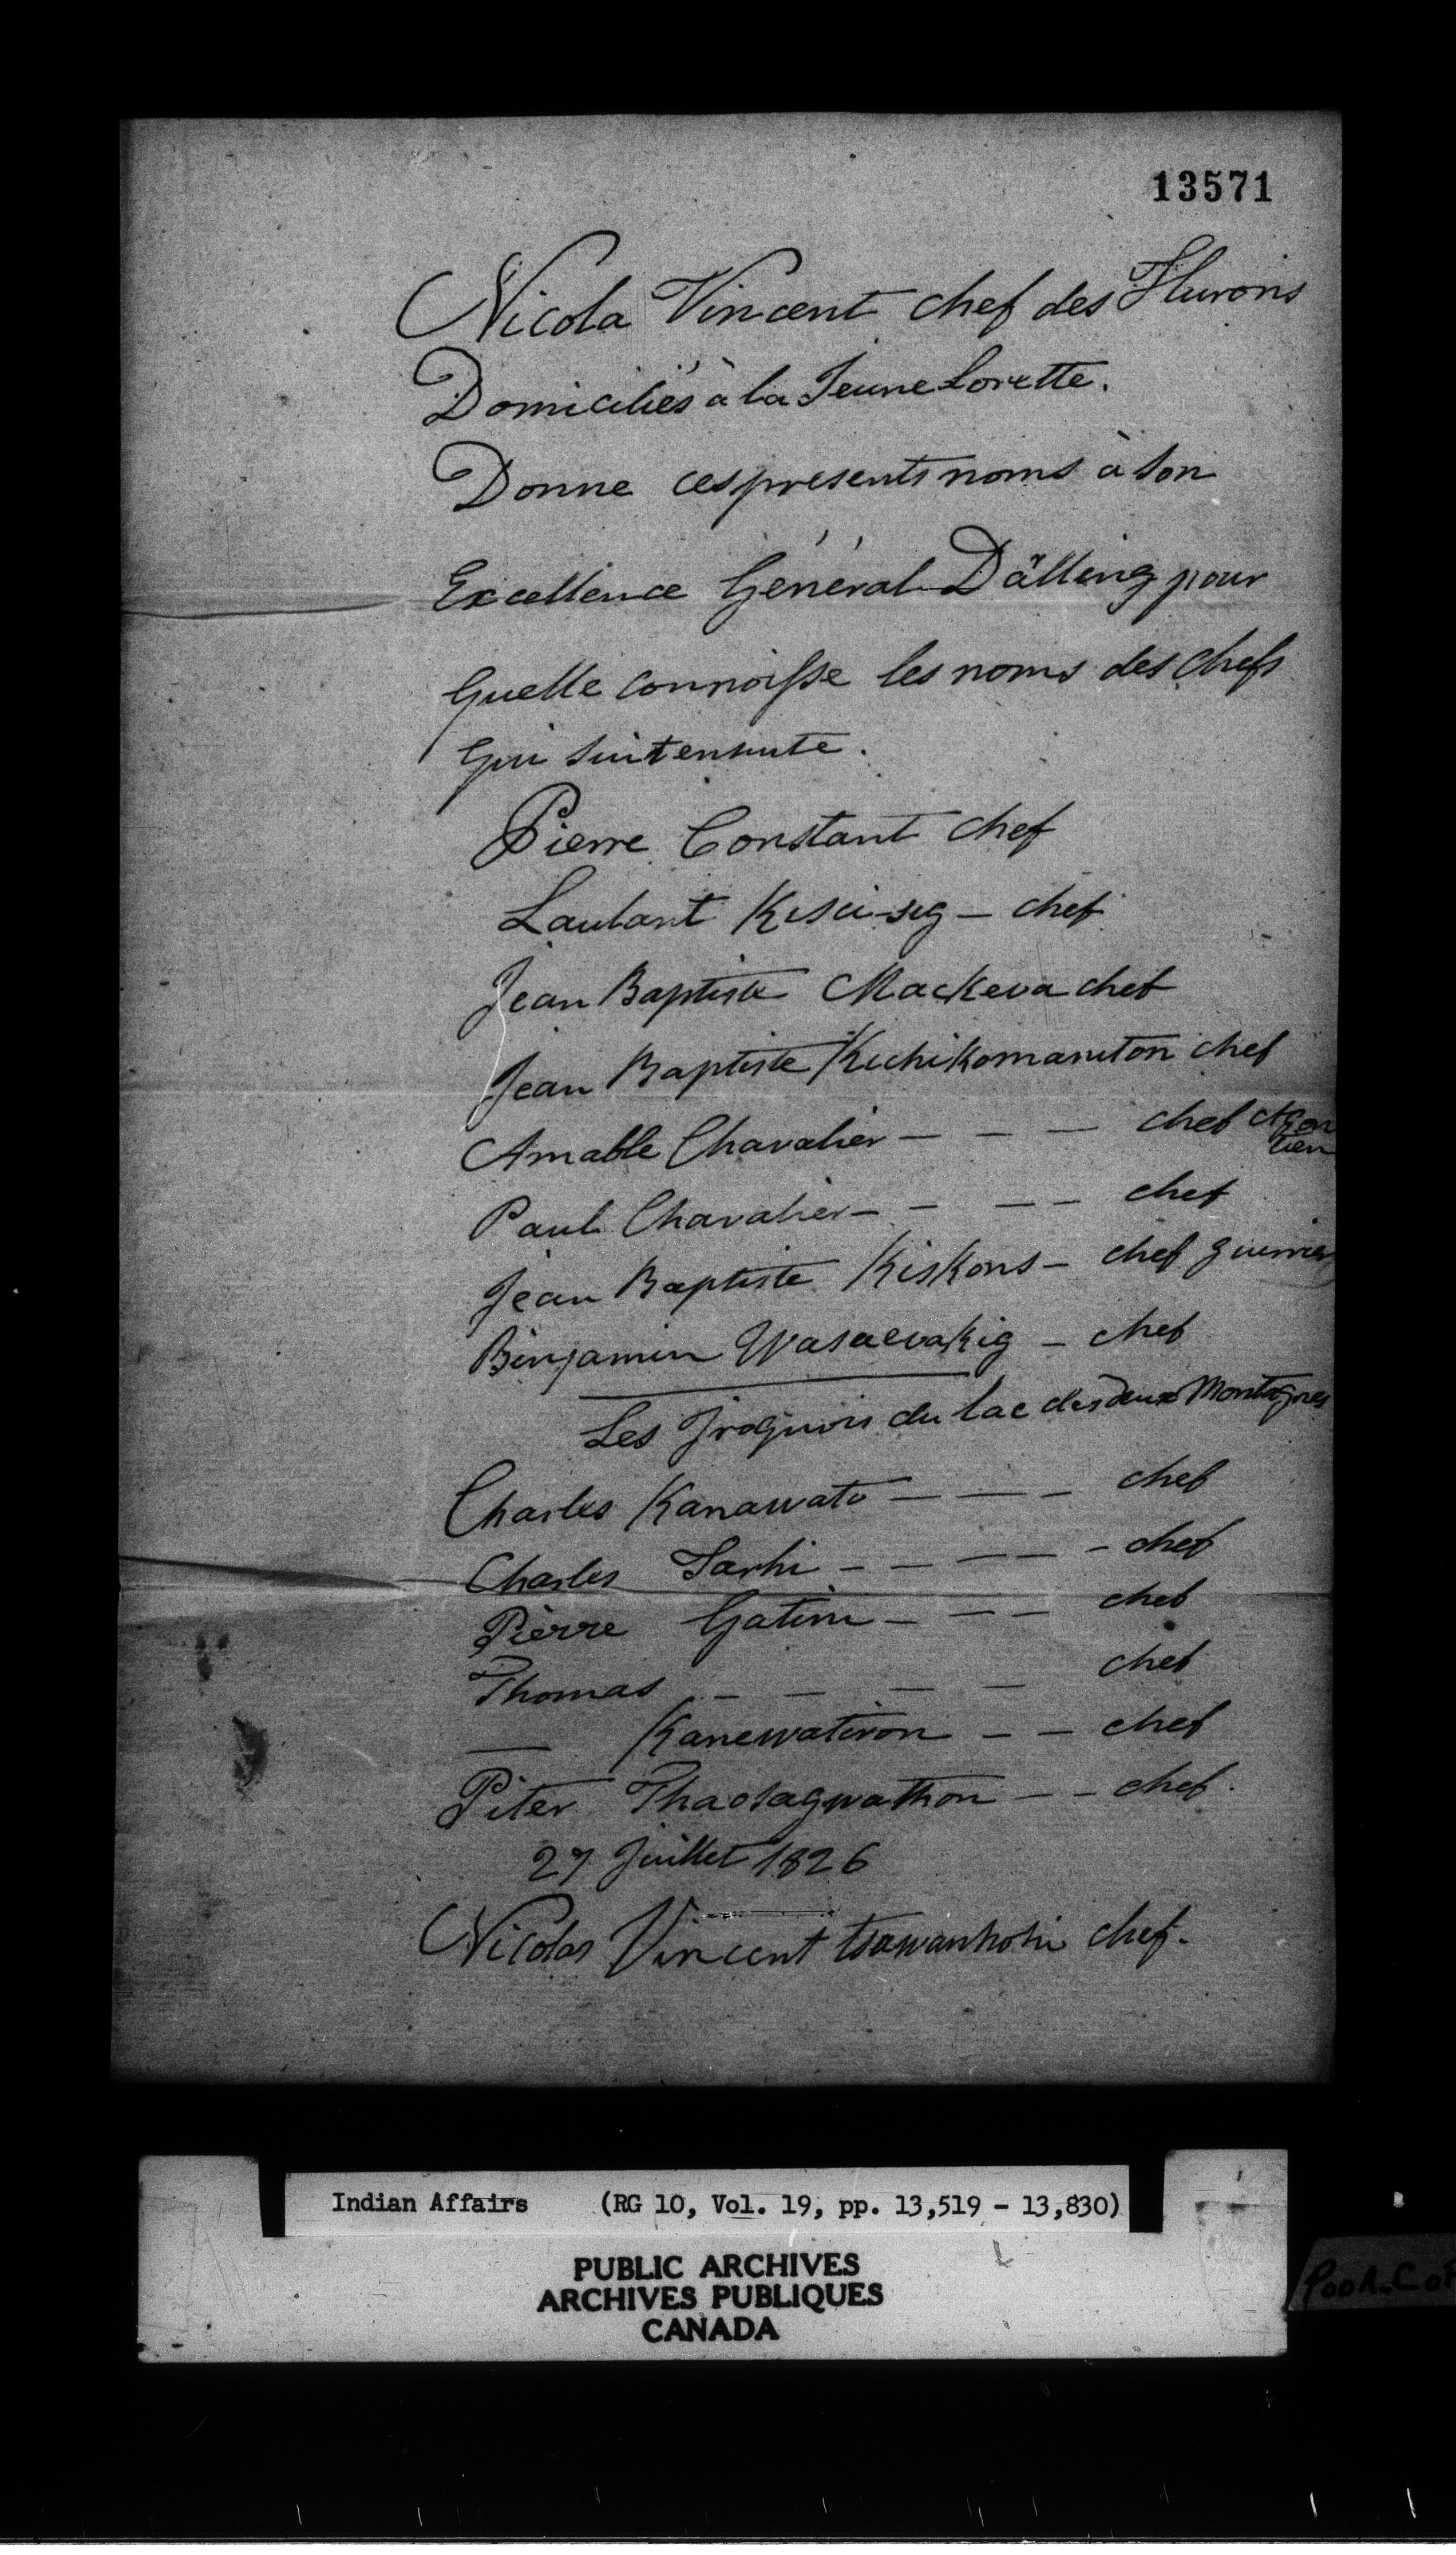 13571
Nicola Vincent chef des Hurons
Domiciliés à la Jeune Lorette.
Donne ces presents noms à Son
Excellence Général Dälling pour
Quelle connoisse les noms des chefs
Qui Suit ensuite.
Pierre Constant chef
Laulant Kisci-sig - chef
Jean Baptiste Mackewa chef
Jean Baptiste Kichikomaniton chef
Amable Chavalier - - - chef
Paul Chavalier - - - - chef
Jean Baptiste Kiskons - chef guerrier
Binjamin Wasaewakig - chef
Les Jroquois du lac des deux Montagnes
Charles Kanawato - - - chef
Charles Sarhi - - - - - chef
Pierre Gatini - - - chef
Thomas - - - - chef
— Kanewatiron - - chef
Piter Thaosagwathon - - chef.
27 Juillet 1826
Nicolas Vincent tsawanhohi chef.
Indian Affairs (RG 10, Vol. 19, pp. 13,519 - 13,830)
PUBLIC ARCHIVES
ARCHIVES PUBLIQUES
CANADA